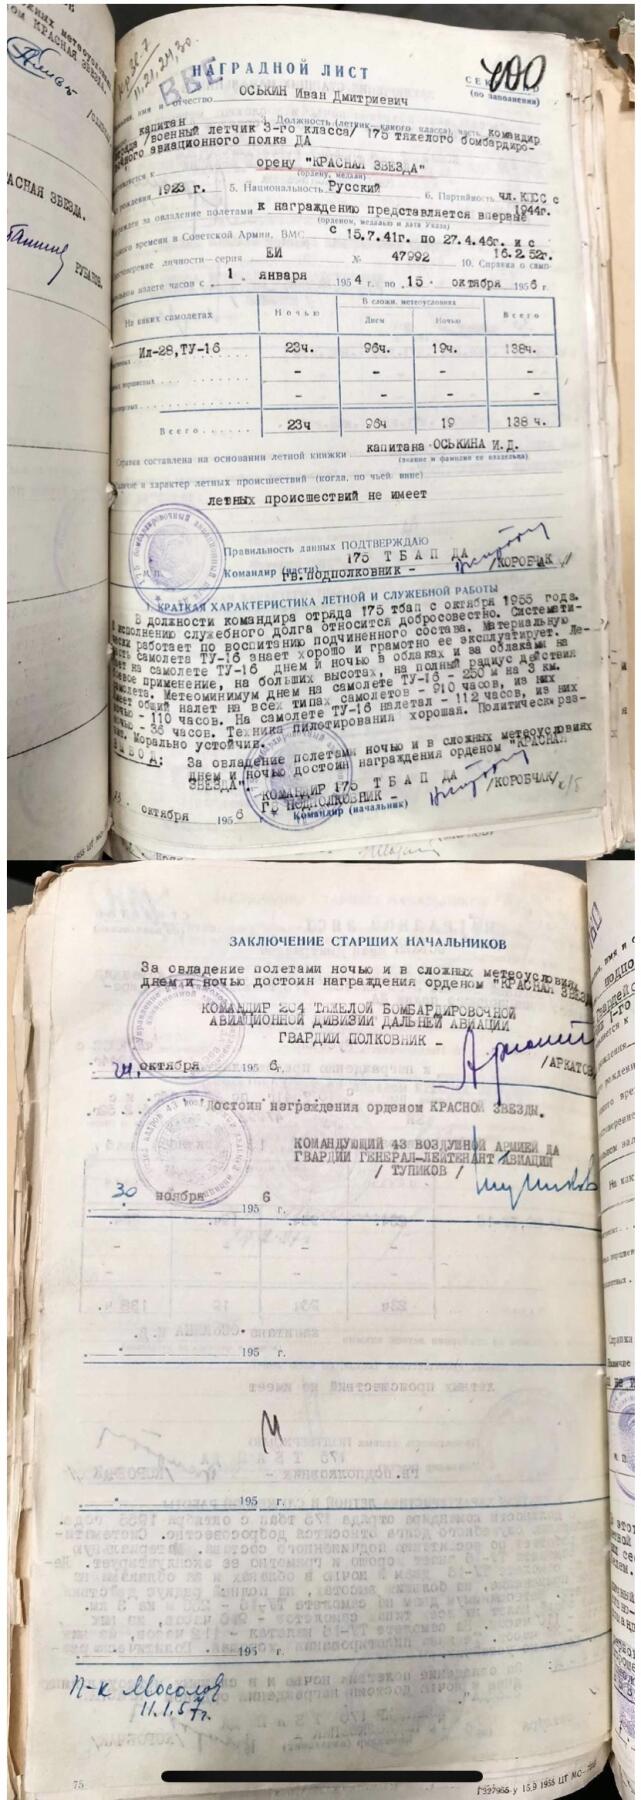 НАГРАДНОЙ ЛИСТ
ВВЕ
400
(по заполнении)
имя и отчество ОСЬКИН Иван Дмитриевич
капитан Должность (летчик какого класса) часть командир
/военный летчик 3-го класса/ 175 тяжелого бомбардиро-
авиационного полка ДА
ордену "КРАСНАЯ ЗВЕЗДА"
(ордену, медали)
рождения 1923 г. 5. Национальность Русский 6. Партийность чл.КПСС с
1944г.
за овладение полетами к награждению представляется впервые
(орденом, медалью и дата Указа)
времени в Советской Армии, ВМС с 15.7.41г. по 27.4.46г. и с
16.2.52г.
личности—серия ЕИ № 47992 10. Справка о само-
налете часов с 1 января 1954 г. по 15 октября 1956 г.
На каких самолетах
Ночью
В сложн. метеоусловиях
Днем
Ночью
Всего
Ил-28,ТУ-16 23ч. 96ч. 19ч. 138ч.
- - - -
- - - -
Всего 23ч 96ч 19 138 ч.
Справка составлена на основании летной книжки капитана ОСЬКИНА И.Д.
(звание и фамилия ее владельца)
и характер летных происшествий (когда, по чьей вине)
летных происшествий не имеет
Правильность данных ПОДТВЕРЖДАЮ
175 Т Б А П ДА
Командир (части)
ГВ.ПОДПОЛКОВНИК - /КОРОБЧАК
I. КРАТКАЯ ХАРАКТЕРИСТИКА ЛЕТНОЙ И СЛУЖЕБНОЙ РАБОТЫ
В должности командира отряда 175 тбап с октября 1955 года.
исполнению служебного долга относится добросовестно. Системати-
чески работает по воспитанию подчиненного состава. Материальную
часть самолета ТУ-16 знает хорошо и грамотно ее эксплуатирует. Ле-
тает на самолете ТУ-16 днем и ночью в облаках и за облаками на
боевое применение, на больших высотах, на полный радиус действия
самолета. Метеоминимум днем на самолете ТУ-16 - 250 м на 3 км.
Имеет общий налет на всех типах самолетов - 910 часов, из них
ночью - 110 часов. На самолете ТУ-16 налетал - 112 часов, из них
ночью - 36 часов. Техника пилотирования хорошая. Политически раз-
вит. Морально устойчив.
ВЫВОД: За овладение полетами ночью и в сложных метеоусловиях
днем и ночью достоин награждения орденом "КРАСНАЯ
ЗВЕЗДА".
КОМАНДИР 175 Т Б А П ДА
ГВ ПОДПОЛКОВНИК - /КОРОБЧАК/
октября 1956 г. Командир (начальник)
ЗАКЛЮЧЕНИЕ СТАРШИХ НАЧАЛЬНИКОВ
За овладение полетами ночью и в сложных метеоусловиях
днем и ночью достоин награждения орденом "КРАСНАЯ ЗВЕЗДА
КОМАНДИР 204 ТЯЖЕЛОЙ БОМБАРДИРОВОЧНОЙ
АВИАЦИОННОЙ ДИВИЗИИ ДАЛЬНЕЙ АВИАЦИИ
ГВАРДИИ ПОЛКОВНИК -
/АРКАТОВ
24. октября 195 6 г.
Достоин награждения орденом КРАСНОЙ ЗВЕЗДЫ.
КОМАНДУЮЩИЙ 43 ВОЗДУШНОЙ АРМИЕЙ ДА
ГВАРДИИ ГЕНЕРАЛ-ЛЕЙТЕНАНТ АВИАЦИИ
/ ТУПИКОВ /
30 ноября 6
195 г.
195 г.
195 г.
195 г.
П-к Мосолов
11.1.57г.
75